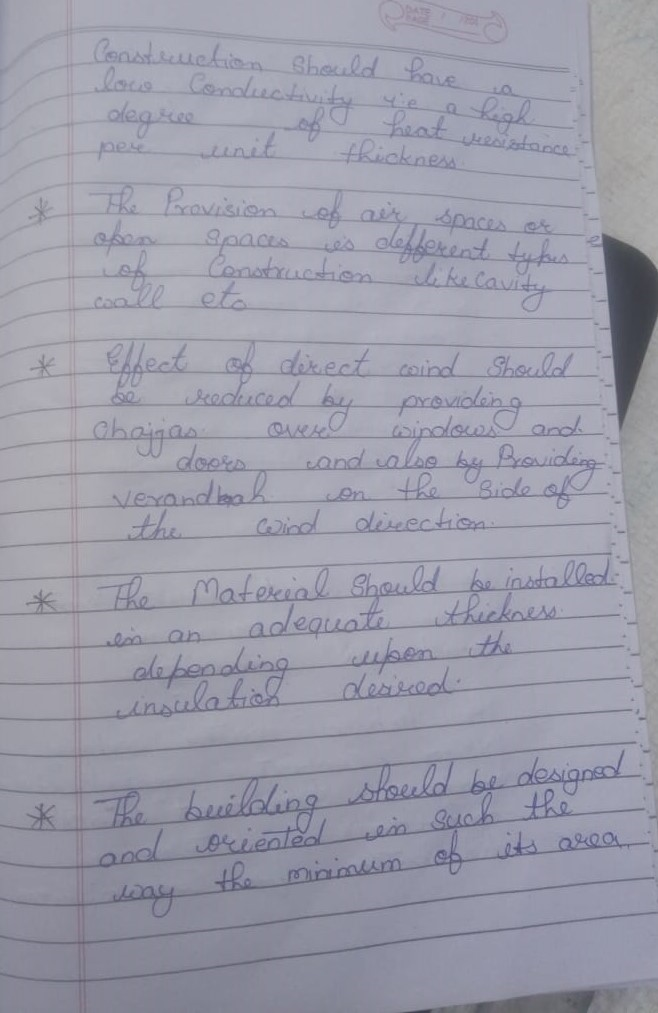 DATE
PAGE
Construction Should have a
low Conductivity i.e a high
degree of heat resistance
per unit thickness.
* The Provision of air spaces or
open spaces is defferent types
of Construction like cavity
wall etc
* Effect of direct wind Should
be reduced by providing
Chajjas over windows and
doors and also by Providing
verandbah on the side of
the wind direction.
* The Material Should be installed
in an adequate thickness
depending upon the
insulation desired.
* The building should be designed
and oriented in such the
way the minimum of its area